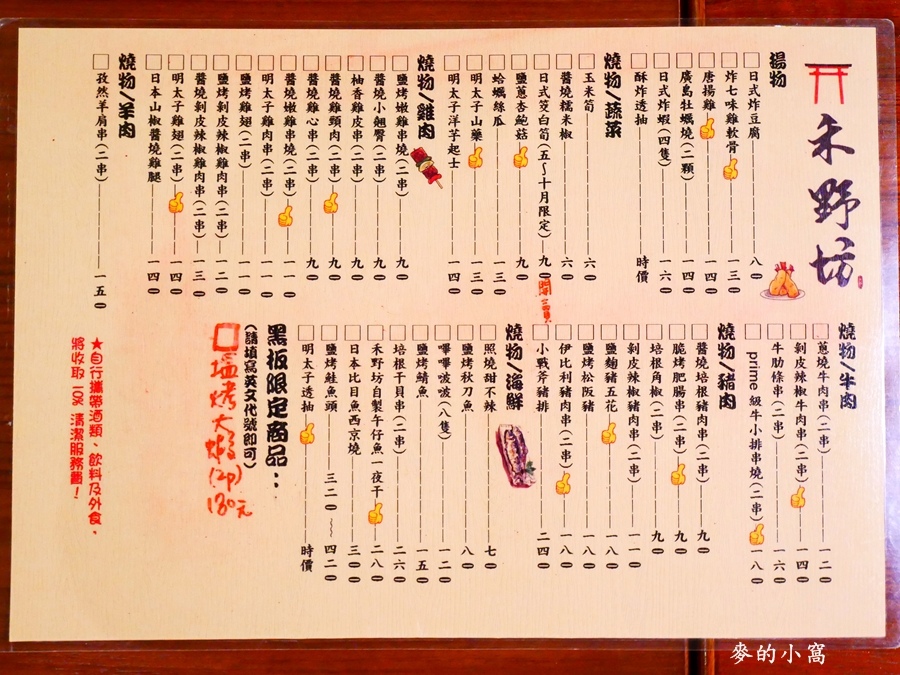 禾野坊
揚物
日式炸豆腐 八0
炸七味雞軟骨 一三0
唐揚雞 一四0
廣島牡蠣燒(二顆) 一四0
日式炸蝦(四隻) 一六0
酥炸透抽 時價
燒物/蔬菜
玉米筍 六0
醬燒糯米椒 六0
日式筊白筍(五~十月限定) 九0
鹽蔥杏鮑菇 九0
蛤蠣絲瓜 一三0
明太子山藥 一三0
明太子洋芋起士 一四0
燒物/雞肉
鹽烤嫩雞串燒(二串) 九0
醬燒小翹臀(二串) 九0
柚香雞皮串(二串) 九0
醬燒雞頸肉(二串) 九0
醬燒雞心串(二串) 九0
醬燒嫩雞串燒(二串) 一一0
明太子雞肉串(二串) 一一0
鹽烤雞翅(二串) 一一0
鹽烤剝皮辣椒雞肉串(二串) 一二0
醬燒剝皮辣椒雞肉串(二串) 一三0
明太子雞翅(二串) 一四0
日本山椒醬燒雞腿 一四0
燒物/羊肉
孜然羊肩串(二串) 一五0
燒物/牛肉
蔥燒牛肉串(二串) 一二0
剝皮辣椒牛肉串(二串) 一四0
牛肋條串(二串) 一六0
prime級牛小排串燒(二串) 一八0
燒物/豬肉
醬燒培根豬肉串(二串) 九0
脆烤肥腸串(二串) 九0
培根角椒(二串) 九0
剝皮辣椒豬肉串(二串) 一一0
鹽麴豬五花 一八0
鹽烤松阪豬 一八0
伊比利豬肉串(二串) 一八0
小戰斧豬排 二四0
燒物/海鮮
照燒甜不辣 七0
鹽烤秋刀魚 八0
嗶嗶啵(八隻) 一二0
鹽烤鯖魚 一五0
培根干貝串(二串) 二六0
禾野坊自製午仔魚一夜干 二八0
日本比目魚西京燒 三00
鹽烤鮭魚頭 三二0~四二0
明太子透抽 時價
黑板限定商品:
(請填寫英文代號即可)
塩烤大蝦(2串) 180元
★自行攜帶酒類、飲料及外食,
將收取10%清潔服務費!
麥的小窩